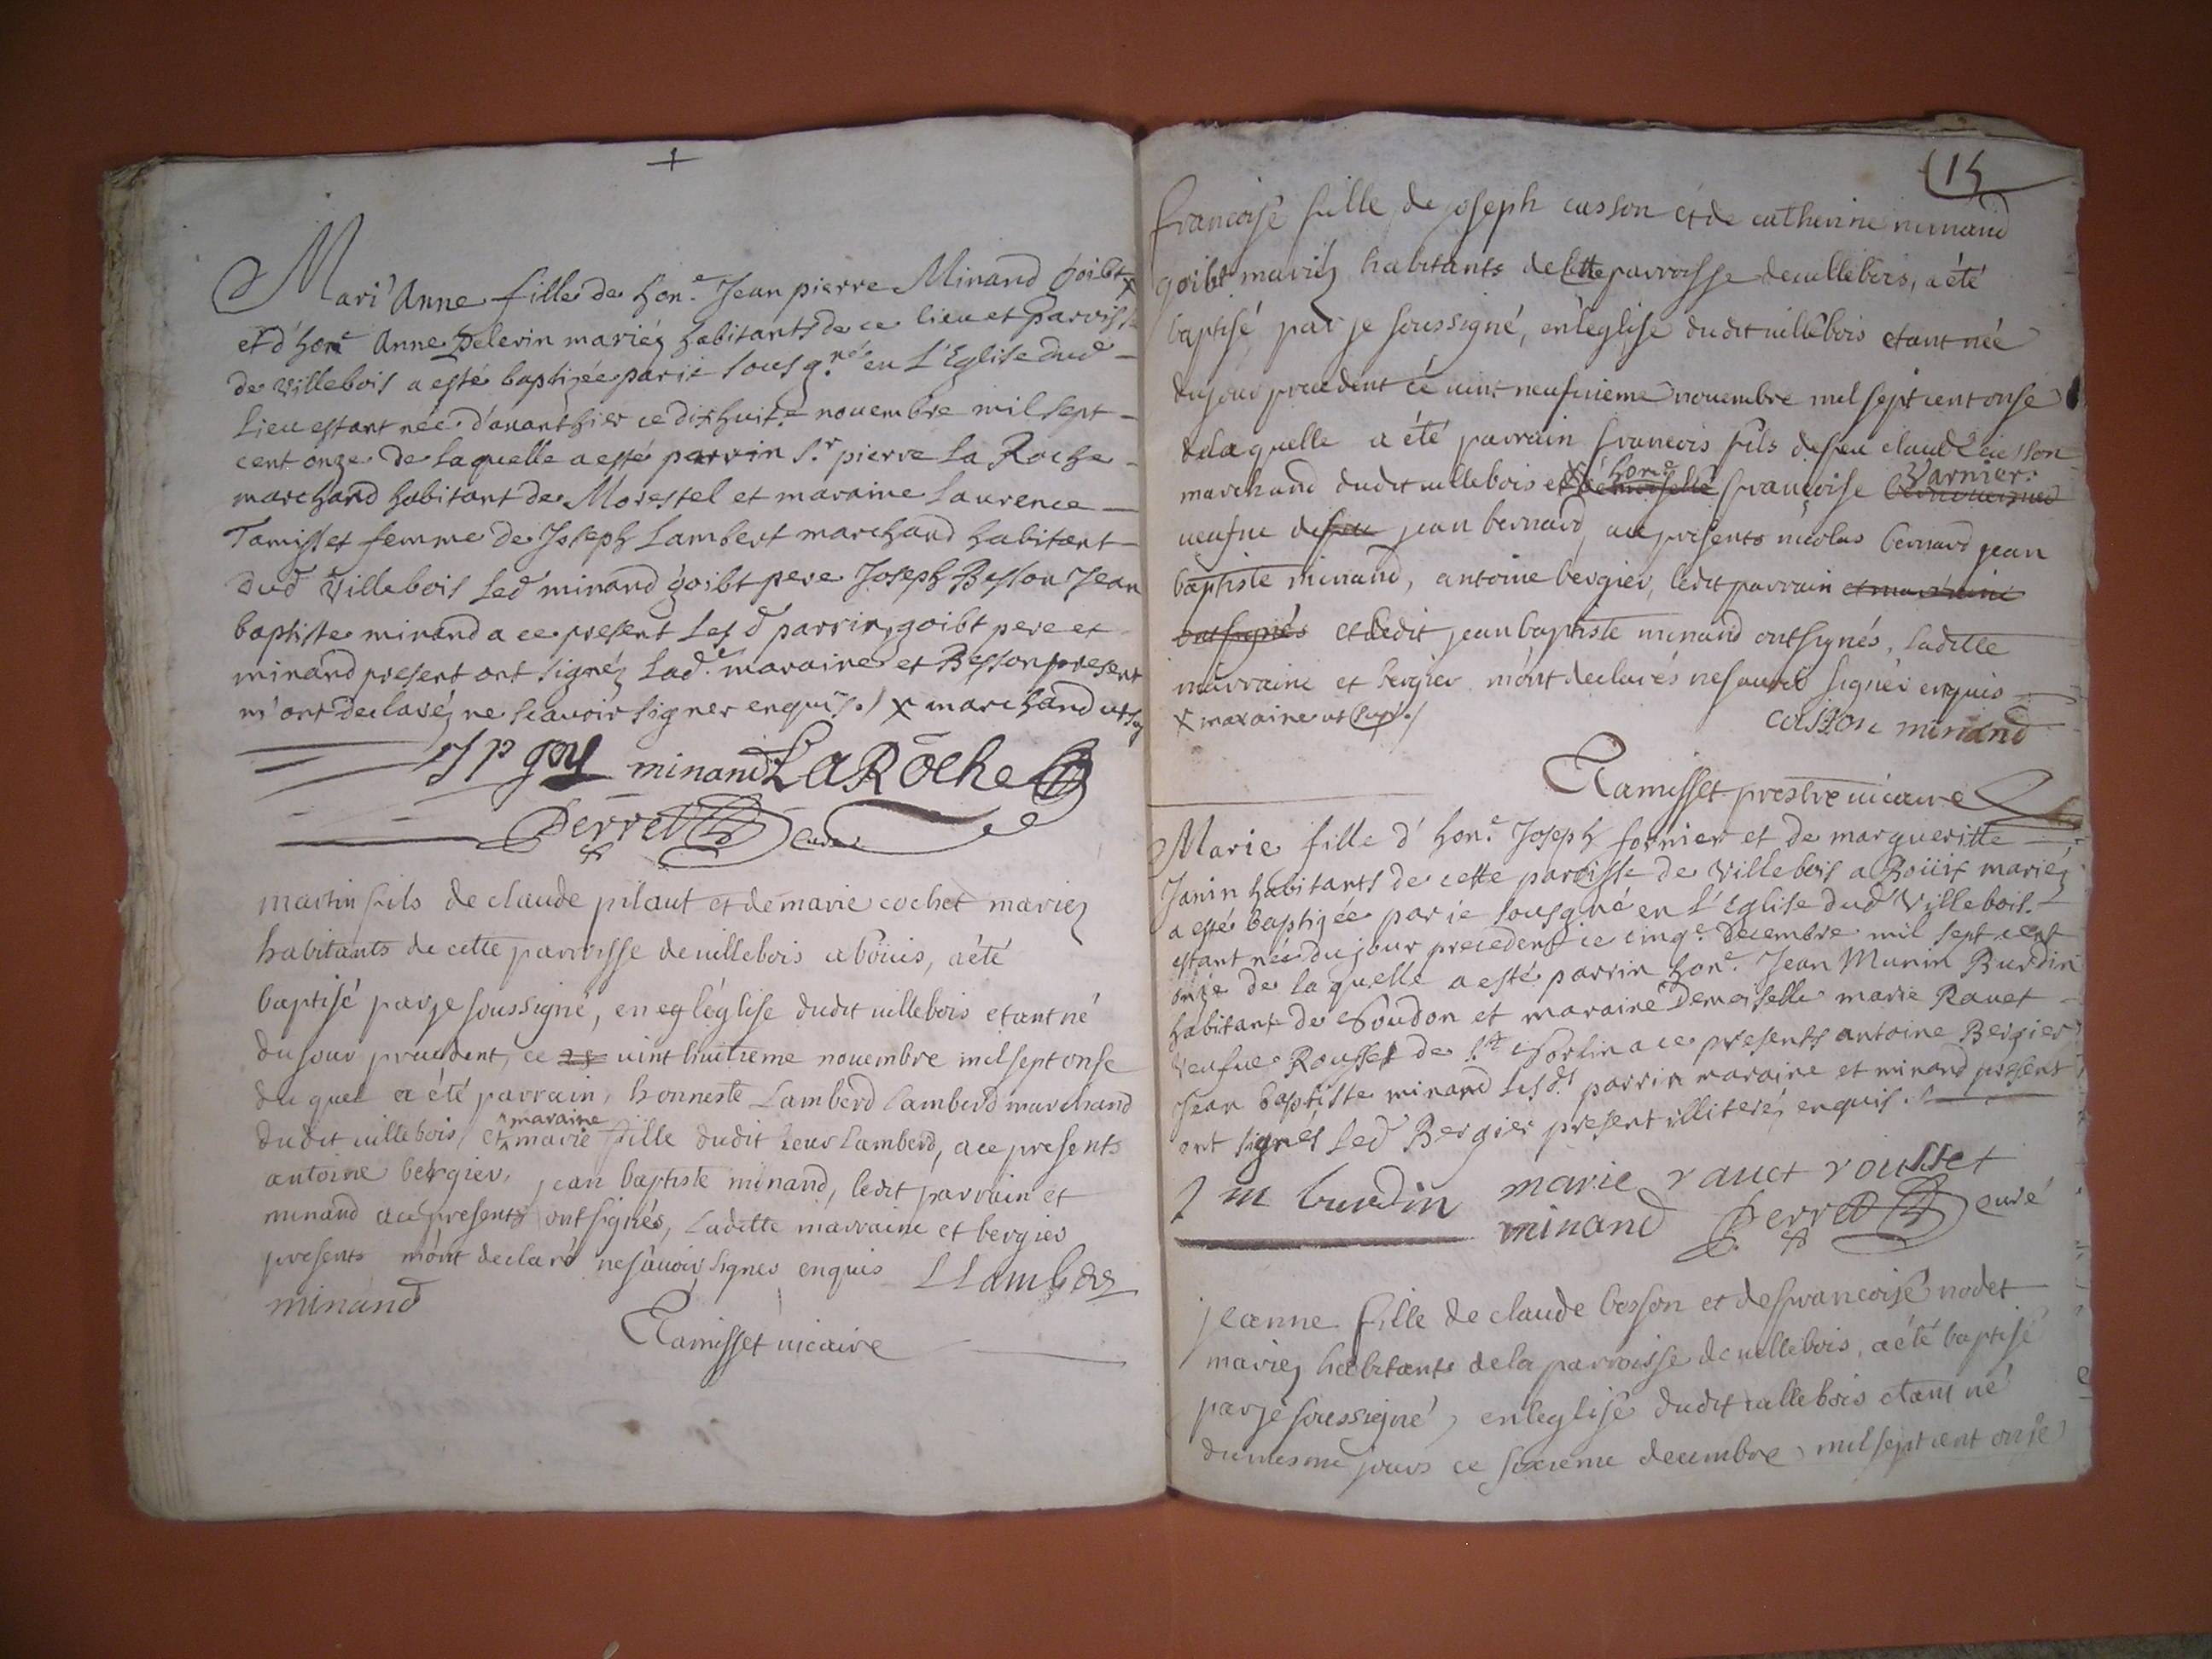 +
Mari Anne fille de hon.e Jean pierre Minand goibt x
et d'hon.e Anne Pelerin mariéz habitants de ce lieu et parroisse
de Villebois a esté baptizée par ie sousg.né en l'Eglise dud
lieu estant née d'auanthier ce dixhuit.e nouembre mil sept
cent onze de laquelle a esté parrin s.r pierre La Roche
marchand habitant de Morestel et maraine Laurence
Tamisset femme de Joseph Lambert marchand habitant
dud Villebois led minand goibt pere Joseph Besson Jean
baptiste minand a ce present lesd parrin, goibt pere et
minand present ont signéz lad.e maraine et Besson present
m'ont declaréz ne scauoir signer enquis ./ x marchand
JP goy minand LaRoche
Perret Curé
martin fils de claude pilaut et de marie cochet mariez
habitants de cette parroisse de uillebois a boüis, a été
baptisé par je soussigné, en eg léglise dudit uillebois etant né
du jour precedent, ce 28 uint huitieme nouembre mil sept onse
du quel a été parrain, honneste Lamberd Lamberd marchand
dudit uillebois, et maraine marie fille dudit sieur Lamberd, a ce presents
antoine bergier, jean baptiste minand, ledit parrain et
minand a ce presents ont signés, Ladette marraine et bergier
presents m'ont declaré ne sauoir signer enquis LLamberd
minand
Tamisset uicaire
15
francoise fille de joseph cusson et de catherine minand
goibt mariéz habitants de cette parroisse de uillebois, a été
baptisé par je soussigné, en leglise dudit uillebois etant née
du jour precedent ce uint neufuieme nouembre mil sept cent onse
de laquelle a été parrain francois fils de feu claude cusson
marchand dudit uillebois et x hon.e demoiselle françoise Varnier
ueufue de feu jean bernard, a ce presents nicolas bernard jean
baptiste minand, antoine bergier, ledit parrain et marraine
ont signés et ledit jean baptiste minand ont signés, Ladille
marraine et bergier m'ont declarés ne sauoir signer enquis
x maraine ut supr. ./ cusson minand
Tamisset prestre uicaire
Marie fille d'hon.e Joseph fornier et de margueritte
Janin habitants de cette paroisse de Villebois a Boüis mariéz
a esté baptizée par ie sousgné en l'Eglise dud Villebois
estant née du jour precedent ce cinq.e decembre mil sept cent
onze de laquelle a esté parrin hon.e Jean Munin Burdin
habitant de Soudon et maraine Demoiselle marie Rauet
Veufue Rousset de S.t Sorlin a ce presents antoine Bergier
Jean baptiste minand lesd.s parrin maraine et minand present
ont signés led Bergier present illiteré enquis ./
J m burdin marie rauet rousset
minand Perret Curé
jeanne fille de claude besson et de francoise nodet
mariez habitants de la parroisse de uillebois, a été baptisé
par je soussigné, en leglise dudit uillebois etant né
du mesme jours ce sixieme decembre mil sept cent onse